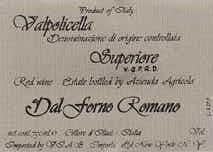 Product of Italy
Valpolicella
Denominazione di origine controllata
Superiore
V.Q.P.R.D.
Red wine Estate bottled by Azienda Agricola
Dal Forno Romano
Cellore d'Illasi - Italia Vol.
Imported by Imports New York N.Y.